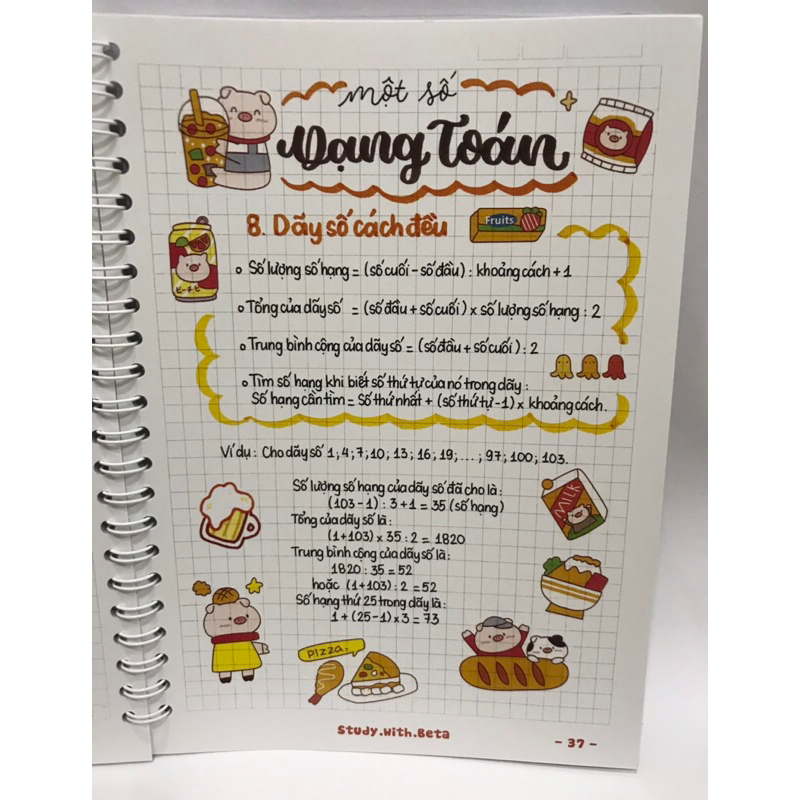 một số
Dạng Toán
8. Dãy số cách đều
Fruits
Số lượng số hạng = (số cuối - số đầu) : khoảng cách + 1
Tổng của dãy số = (số đầu + số cuối) x số lượng số hạng : 2
Trung bình cộng của dãy số = (số đầu + số cuối) : 2
Tìm số hạng khi biết số thứ tự của nó trong dãy :
Số hạng cần tìm = Số thứ nhất + (số thứ tự - 1) x khoảng cách.
Ví dụ : Cho dãy số 1; 4; 7; 10; 13; 16; 19; ... ; 97; 100; 103.
Số lượng số hạng của dãy số đã cho là :
(103 - 1) : 3 + 1 = 35 (số hạng)
Tổng của dãy số là :
(1 + 103) x 35 : 2 = 1820
Trung bình cộng của dãy số là :
1820 : 35 = 52
hoặc (1 + 103) : 2 = 52
Số hạng thứ 25 trong dãy là :
1 + (25 - 1) x 3 = 73
MILK
PIZZA.
Study.With.Beta
- 37 -